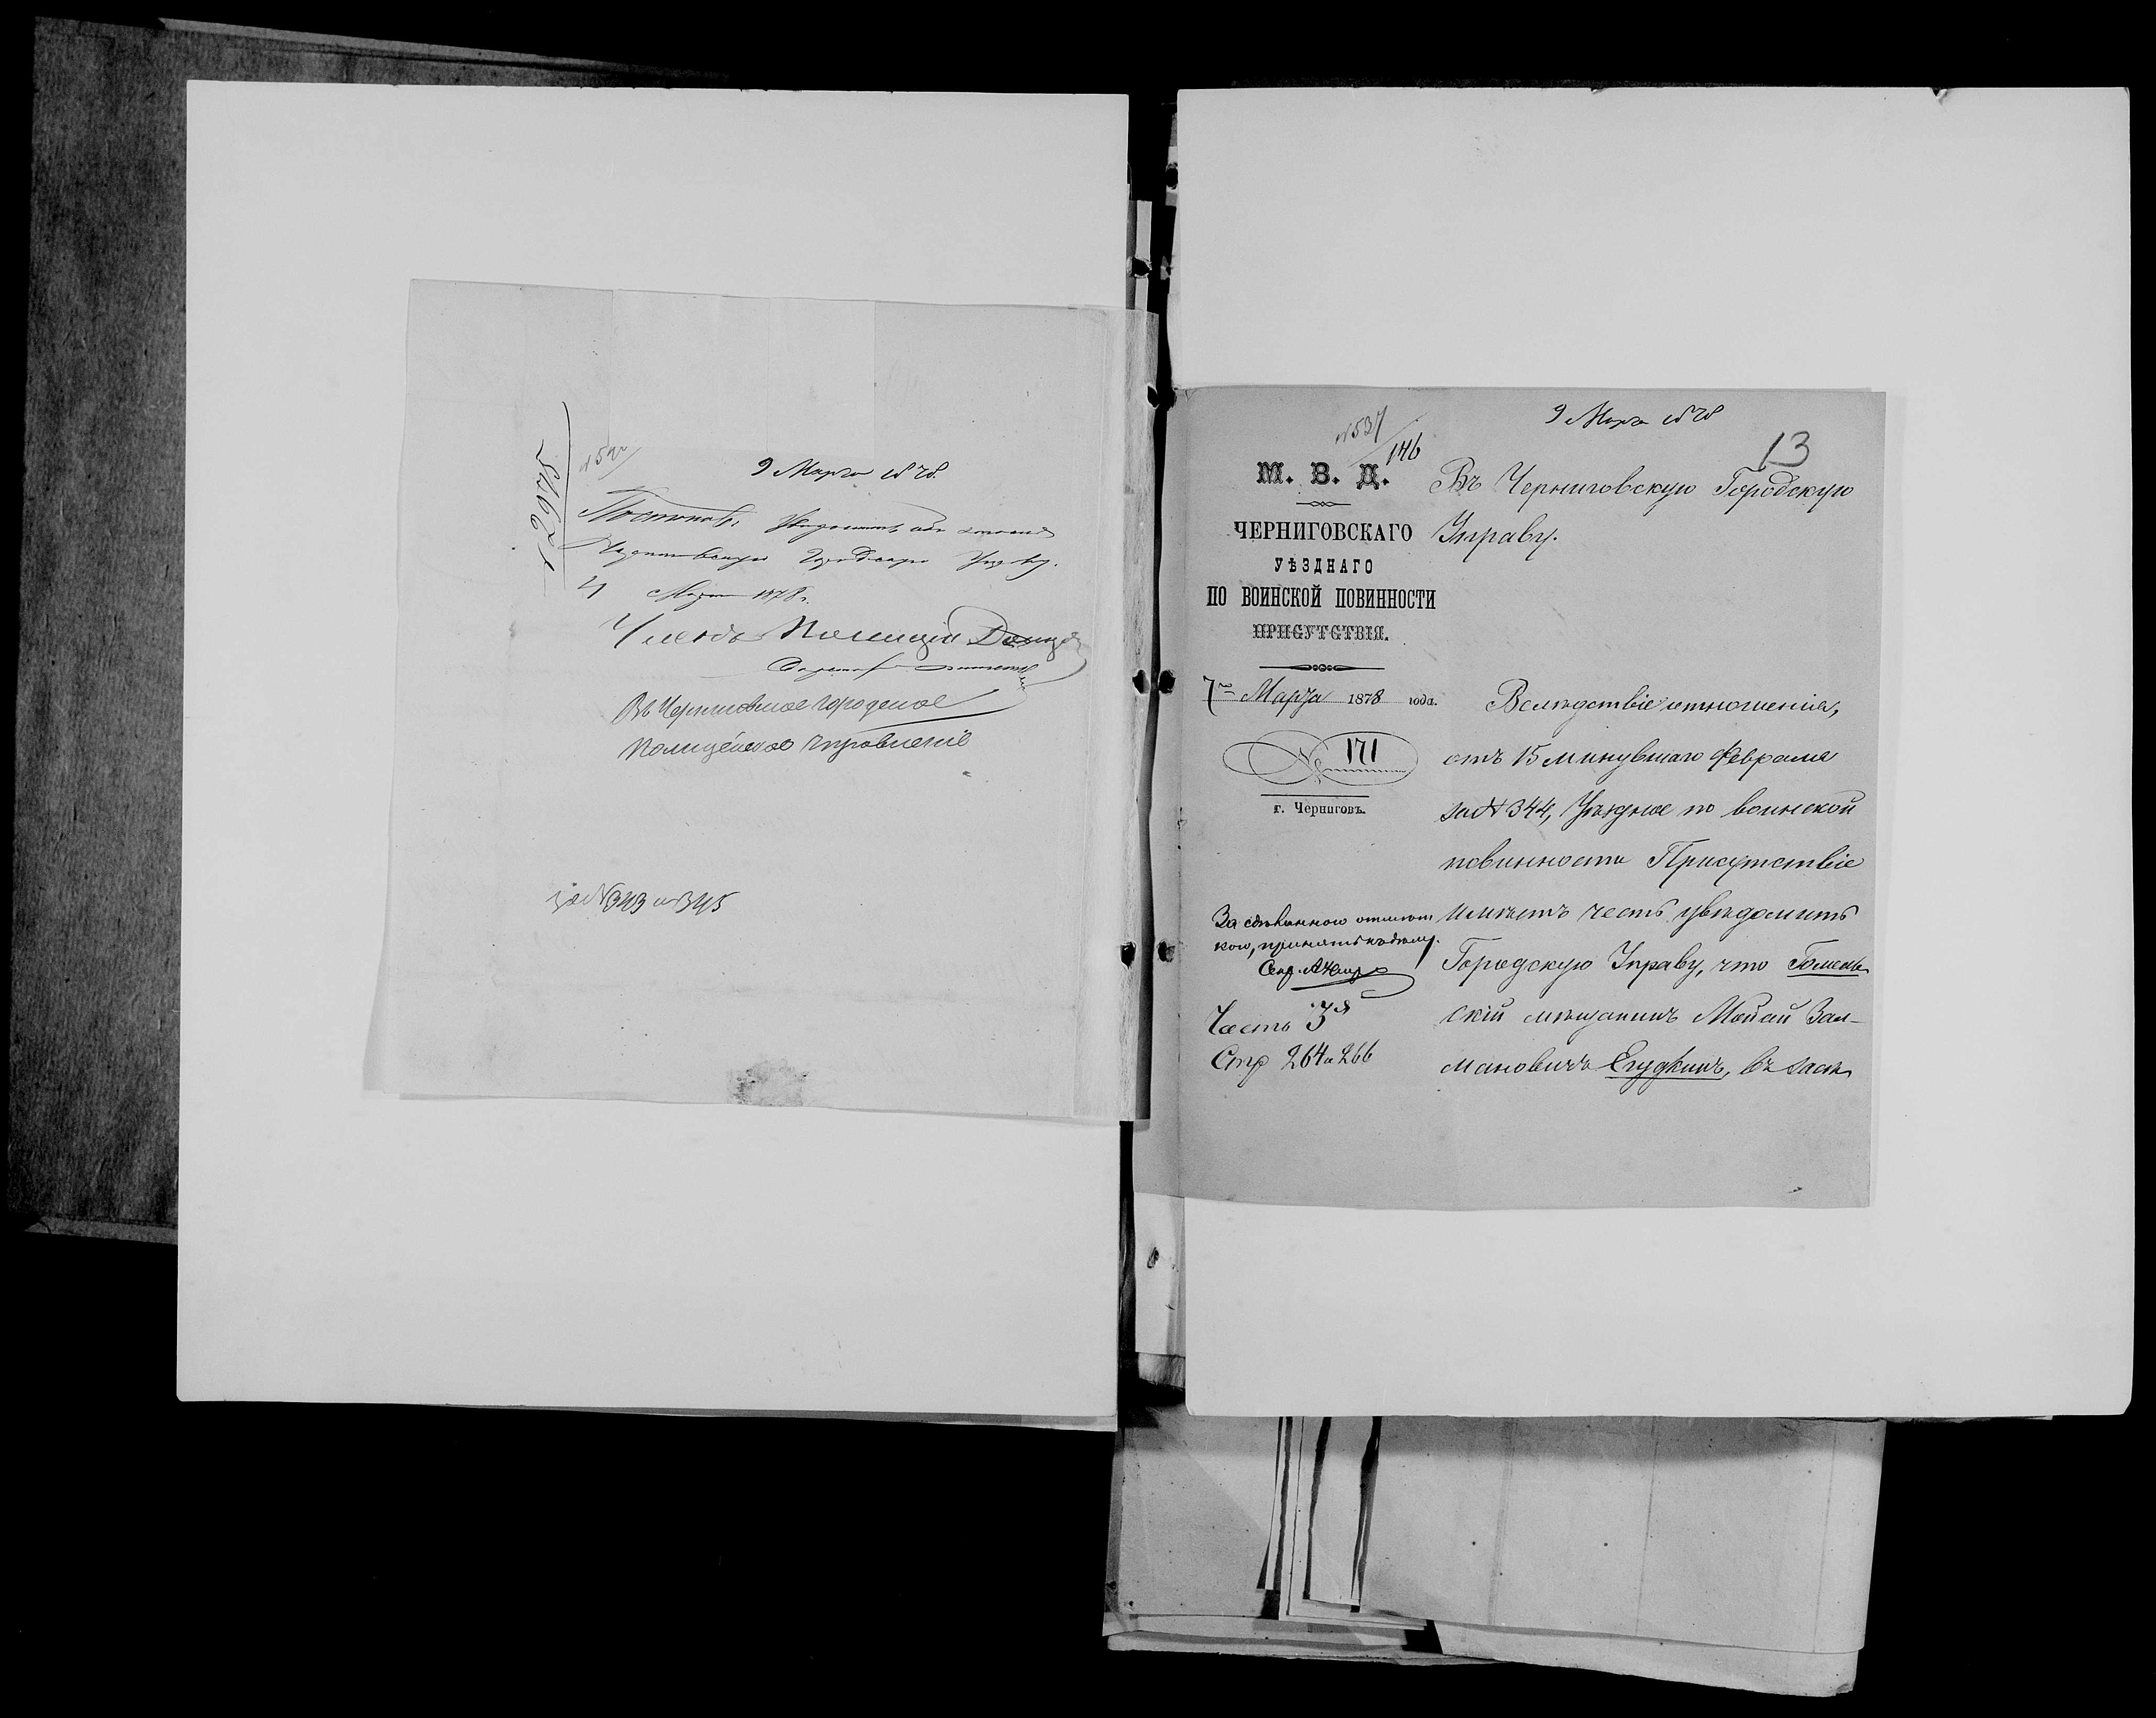 9 Марта 1878.
Черниговскую Городскую Управу.
4 Марта 1878 г.
Членъ Полиціи
Въ Черниговское городское
полицейское управленіе
за №343 и 345
№537/146
9 Марта 1878
13
М. В. Д.
ЧЕРНИГОВСКАГО
УѢЗДНАГО
ПО ВОИНСКОЙ ПОВИННОСТИ
ПРИСУТСТВІЯ.
7го Марта 1878 года.
№ 171
г. Черниговъ.
За сдѣланною отмѣт
кою, пріобщить къ дѣлу.
Секр.
Часть 3я
Стр 264 и 266
Въ Черниговскую Городскую
Управу.
Вслѣдствіе отношенія,
отъ 15 минувшаго Февраля
за № 344, Уѣздное по воинской
повинности Присутствіе
имѣетъ честь увѣдомить
Городскую Управу, что Гомель
скій мѣщанинъ Зал-
мановичъ Егудкинъ, въ засѣ